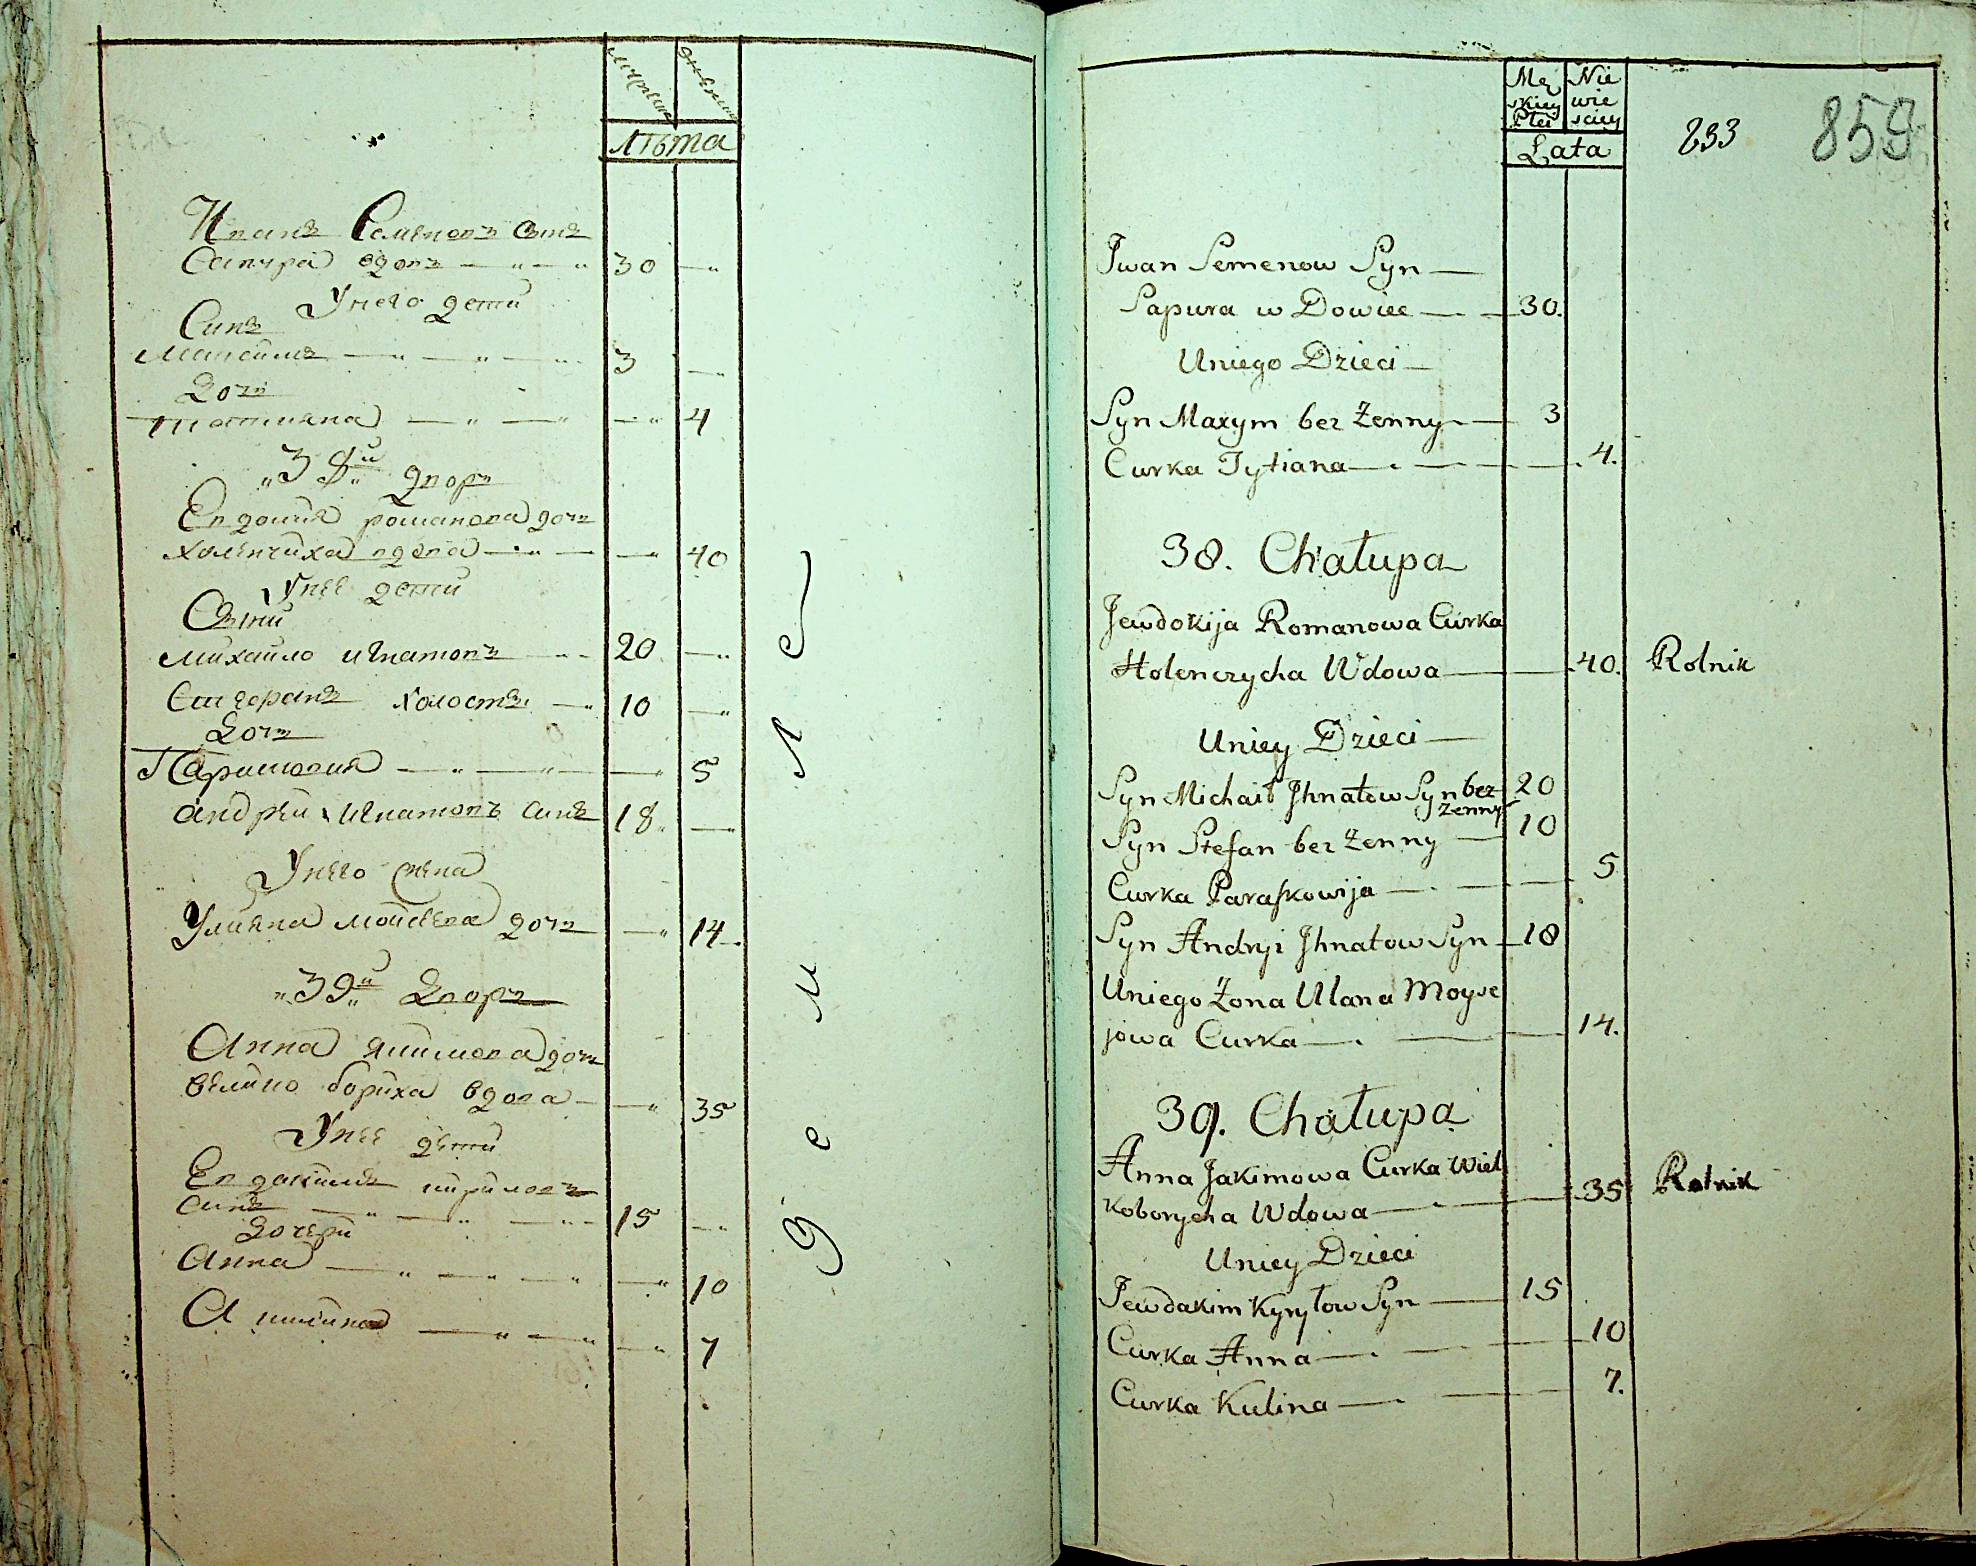 мужеска
женска
лѣта
Иванъ Семеновъ сынъ
Сапура вдовъ 30
У него дети
Сынъ
Максимъ 3
Дочь
Татияна 4
38й дворъ
Евдокия романова дочь
холенчиха вдова 40
У нее дети
Сыни
михайло игнатовъ 20
Степанъ холостъ 10
Дочь
Парасковия 5
андрей игнатовъ синъ 18
У него жена
Улияна мойсеева дочь 14
39й Дворъ
Анна якимова дочь
великобориха вдова 35
У нее дети
Евдакимъ кириловъ
синъ 15
Дочери
Анна 10
Акилина 7
Mę Nie
skiey wie
Płci sciey
Lata
233
859
Jwan Semenow Syn
Sapura w Dowiec 30.
Uniego Dzieci
Syn Maxym bez Żenny 3
Curka Tytiana 4.
38. Chałupa
Jewdokija Romanowa Curka
Holenczycha Wdowa 40. Rolnik
Uniey Dzieci
Syn Michaił Jhnatow Syn bez 20
Żenny
Syn Stefan bez Żenny 10
Curka Paraskowija 5
Syn Andryi Jhnatow Syn 18
Uniego Żona Ulana Moyse
jowa Curka 14.
39. Chałupa
Anna Jakimowa Curka Wiel
koborycha Wdowa 35 Rolnik
Uniey Dzieci
Jewdakim Kyryłow Syn 15
Curka Anna 10
Curka Kulina 7.